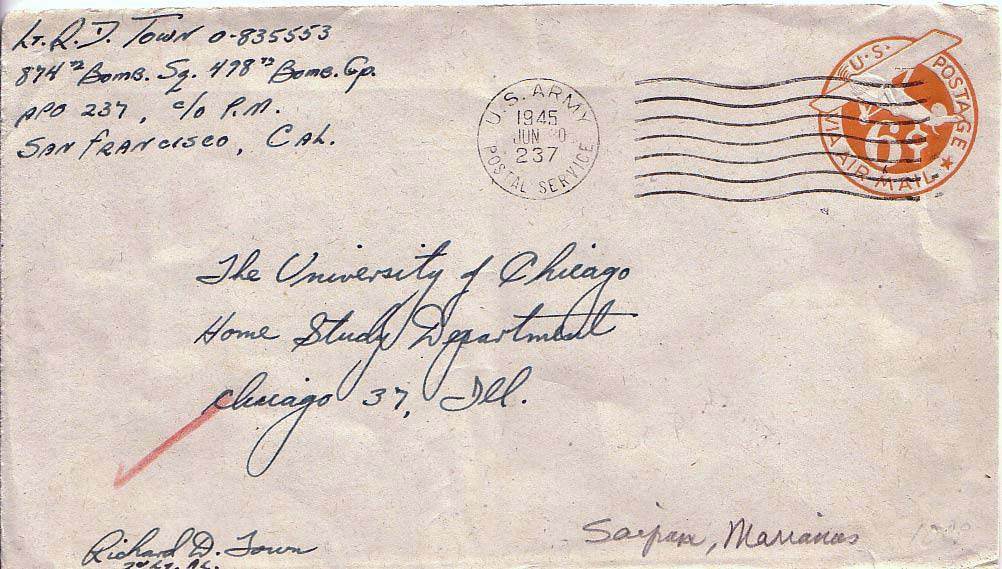 Lt. R. D. Town O-835553
874th Bomb. Sq. 498th Bomb. Gp.
APO 237, c/o P.M.
San Francisco, Cal.
U.S. ARMY
1945
JUN 30
237
POSTAL SERVICE
U.S. POSTAGE
6¢
VIA AIR MAIL
The University of Chicago
Home Study Department
Chicago 37, Ill.
Richard D. Town
2nd Lt. A.C.
Saipan, Marianas